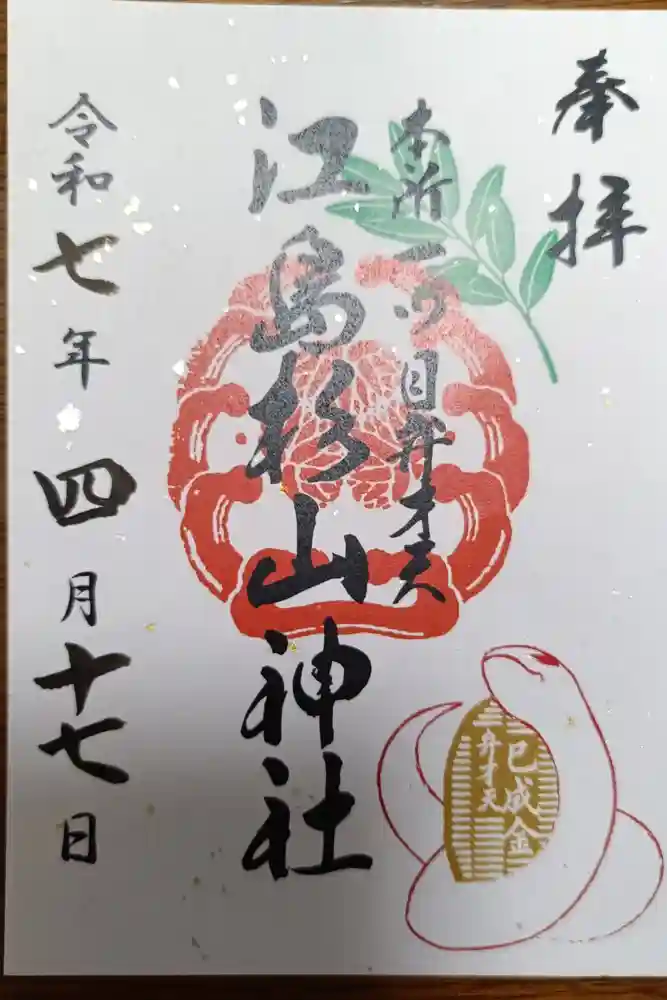 奉拝
本所一つ目弁才天
江島杉山神社
令和七年四月十七日
巳成金
弁才天